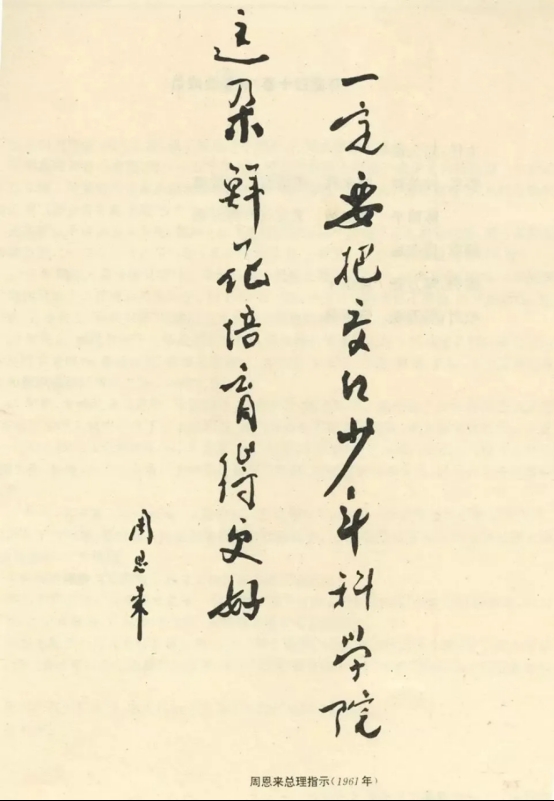 一定要把交口少年科学院
这朵鲜花培育得更好
周恩来
周恩来总理指示(1961年)